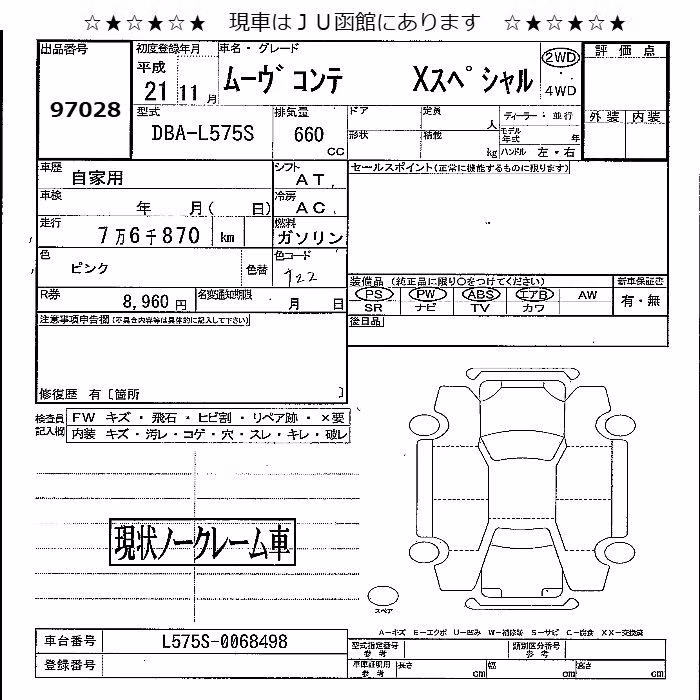 ☆★☆★☆★ 現車はＪＵ函館にあります ☆★☆★☆★
出品番号 初度登録年月 車名・グレード 2WD 評価点
97028 平成 21 11月 ムーヴコンテ Xスペシャル 4WD
外装 内装
型式 排気量 ドア 定員 人 ディーラー・並行
DBA-L575S 660 CC 形状 積載 kg モデル年式 年
ハンドル 左・右
車歴 自家用 シフト AT セールスポイント(正常に機能するものに限ります)
車検 年 月( 日) 冷房 AC
走行 7万6千870 km 燃料 ガソリン
色 ピンク 色替 色コード T22
装備品 (純正品に限り○をつけてください) 新車保証書
R券 8,960円 名変通知期限 月 日 PS PW ABS エアB AW 有・無
SR ナビ TV カワ
注意事項申告欄(不具合内容等は具体的に記入して下さい) 後日品
修復歴 有〔箇所 〕
検査員記入欄 FW キズ・飛石・ヒビ割・リペア跡・×要
内装 キズ・汚レ・コゲ・穴・スレ・キレ・破レ
現状ノークレーム車
スペア
A-キズ E-エクボ U-凹み W-補修跡 S-サビ C-腐食 XX-交換済
車台番号 L575S-0068498 型式指定番号 参考 類別区分番号 参考
登録番号 車庫証明用 参考 長さ cm 幅 cm 高さ cm